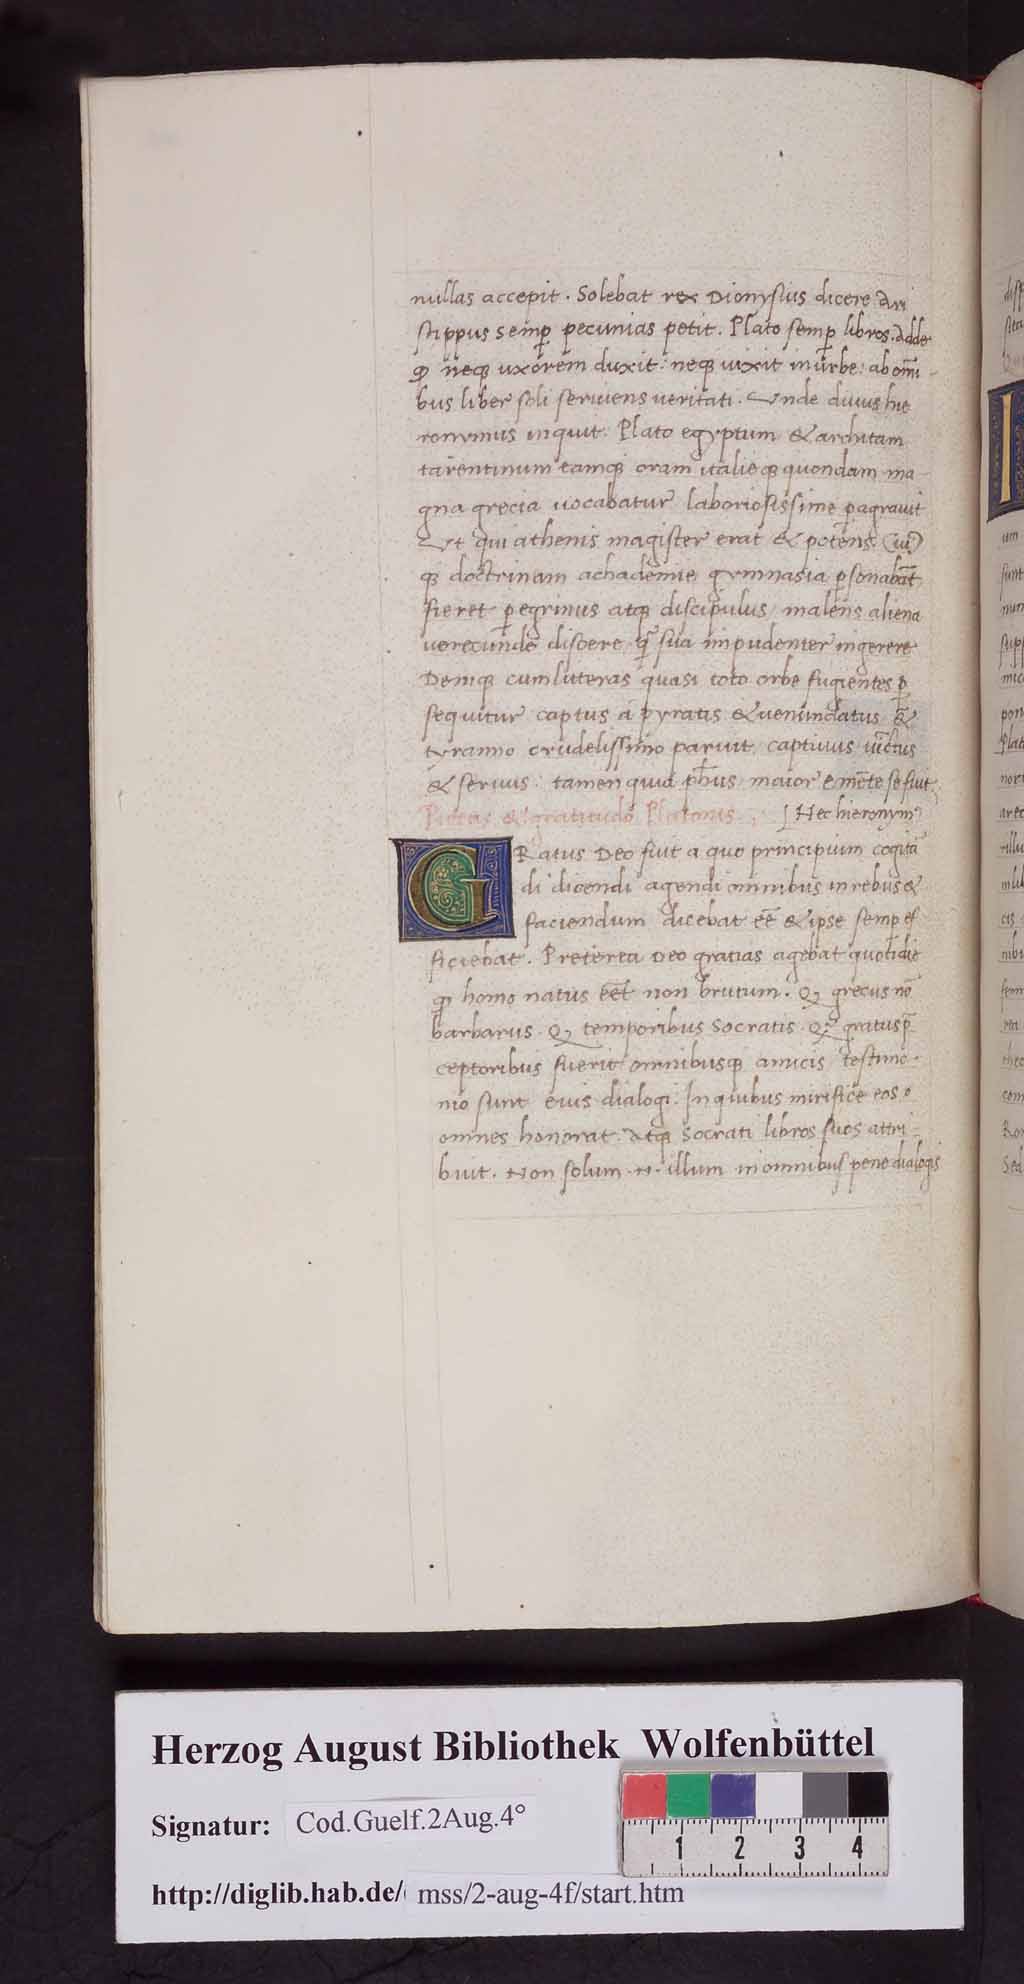 nullas accepit. Solebat rex Dionysius dicere Ari
stippus semp̱ pecunias petit. Plato semp̱ libros. adde
ꝙ neqꝫ uxorem duxit: neqꝫ uixit in urbe: ab om̄i
bus liber soli seruiens ueritati. Vnde diuus hie
ronymus inquit. Plato egyptum & architam
tarentinum eamqꝫ oram italie qꝫ quondam ma-
gna grecia uocabatur laboriosissime ꝑagrauit
Vt qui athenis magister erat & potens. cui
qꝫ doctrinam achademie gymnasia ꝑsonabāt
fieret ꝑegrinus atqꝫ discipulus malens aliena
uerecunde discere q̄ sua impudenter ingerere
Deniqꝫ cum litteras quasi toto orbe fugientes ꝑ
sequitur captus a pyratis & uenundatus &
tyranno crudelissimo paruit captiuus uīctus
& seruus: tamen quia ph̄us maior emēte se fuit
Pietas & gratitudo Platonis. [Hec hieronymꝰ
GRatus Deo fuit a quo principium cogitā
di dicendi agendi omnibus in rebus &
faciendum dicebat eē & ipse semp̱ ef
ficiebat. Preterea Deo gratias agebat quotidie
ꝙ homo natus eēt non brutum. Qꝫ grecus nō
barbarus. Qꝫ temporibus Socratis. Qꝫ gratus p̄
ceptoribus fuerit omnibusqꝫ amicis testimo-
nio sunt eius dialogi. In quibus mirifice eos
omnes honorat. Atqꝫ Socrati libros suos attri-
buit. Non solum .n. illum in omnibus pene dialogis
Herzog August Bibliothek Wolfenbüttel
Signatur: Cod.Guelf.2Aug.4°
1 2 3 4
http://diglib.hab.de/ mss/2-aug-4f/start.htm